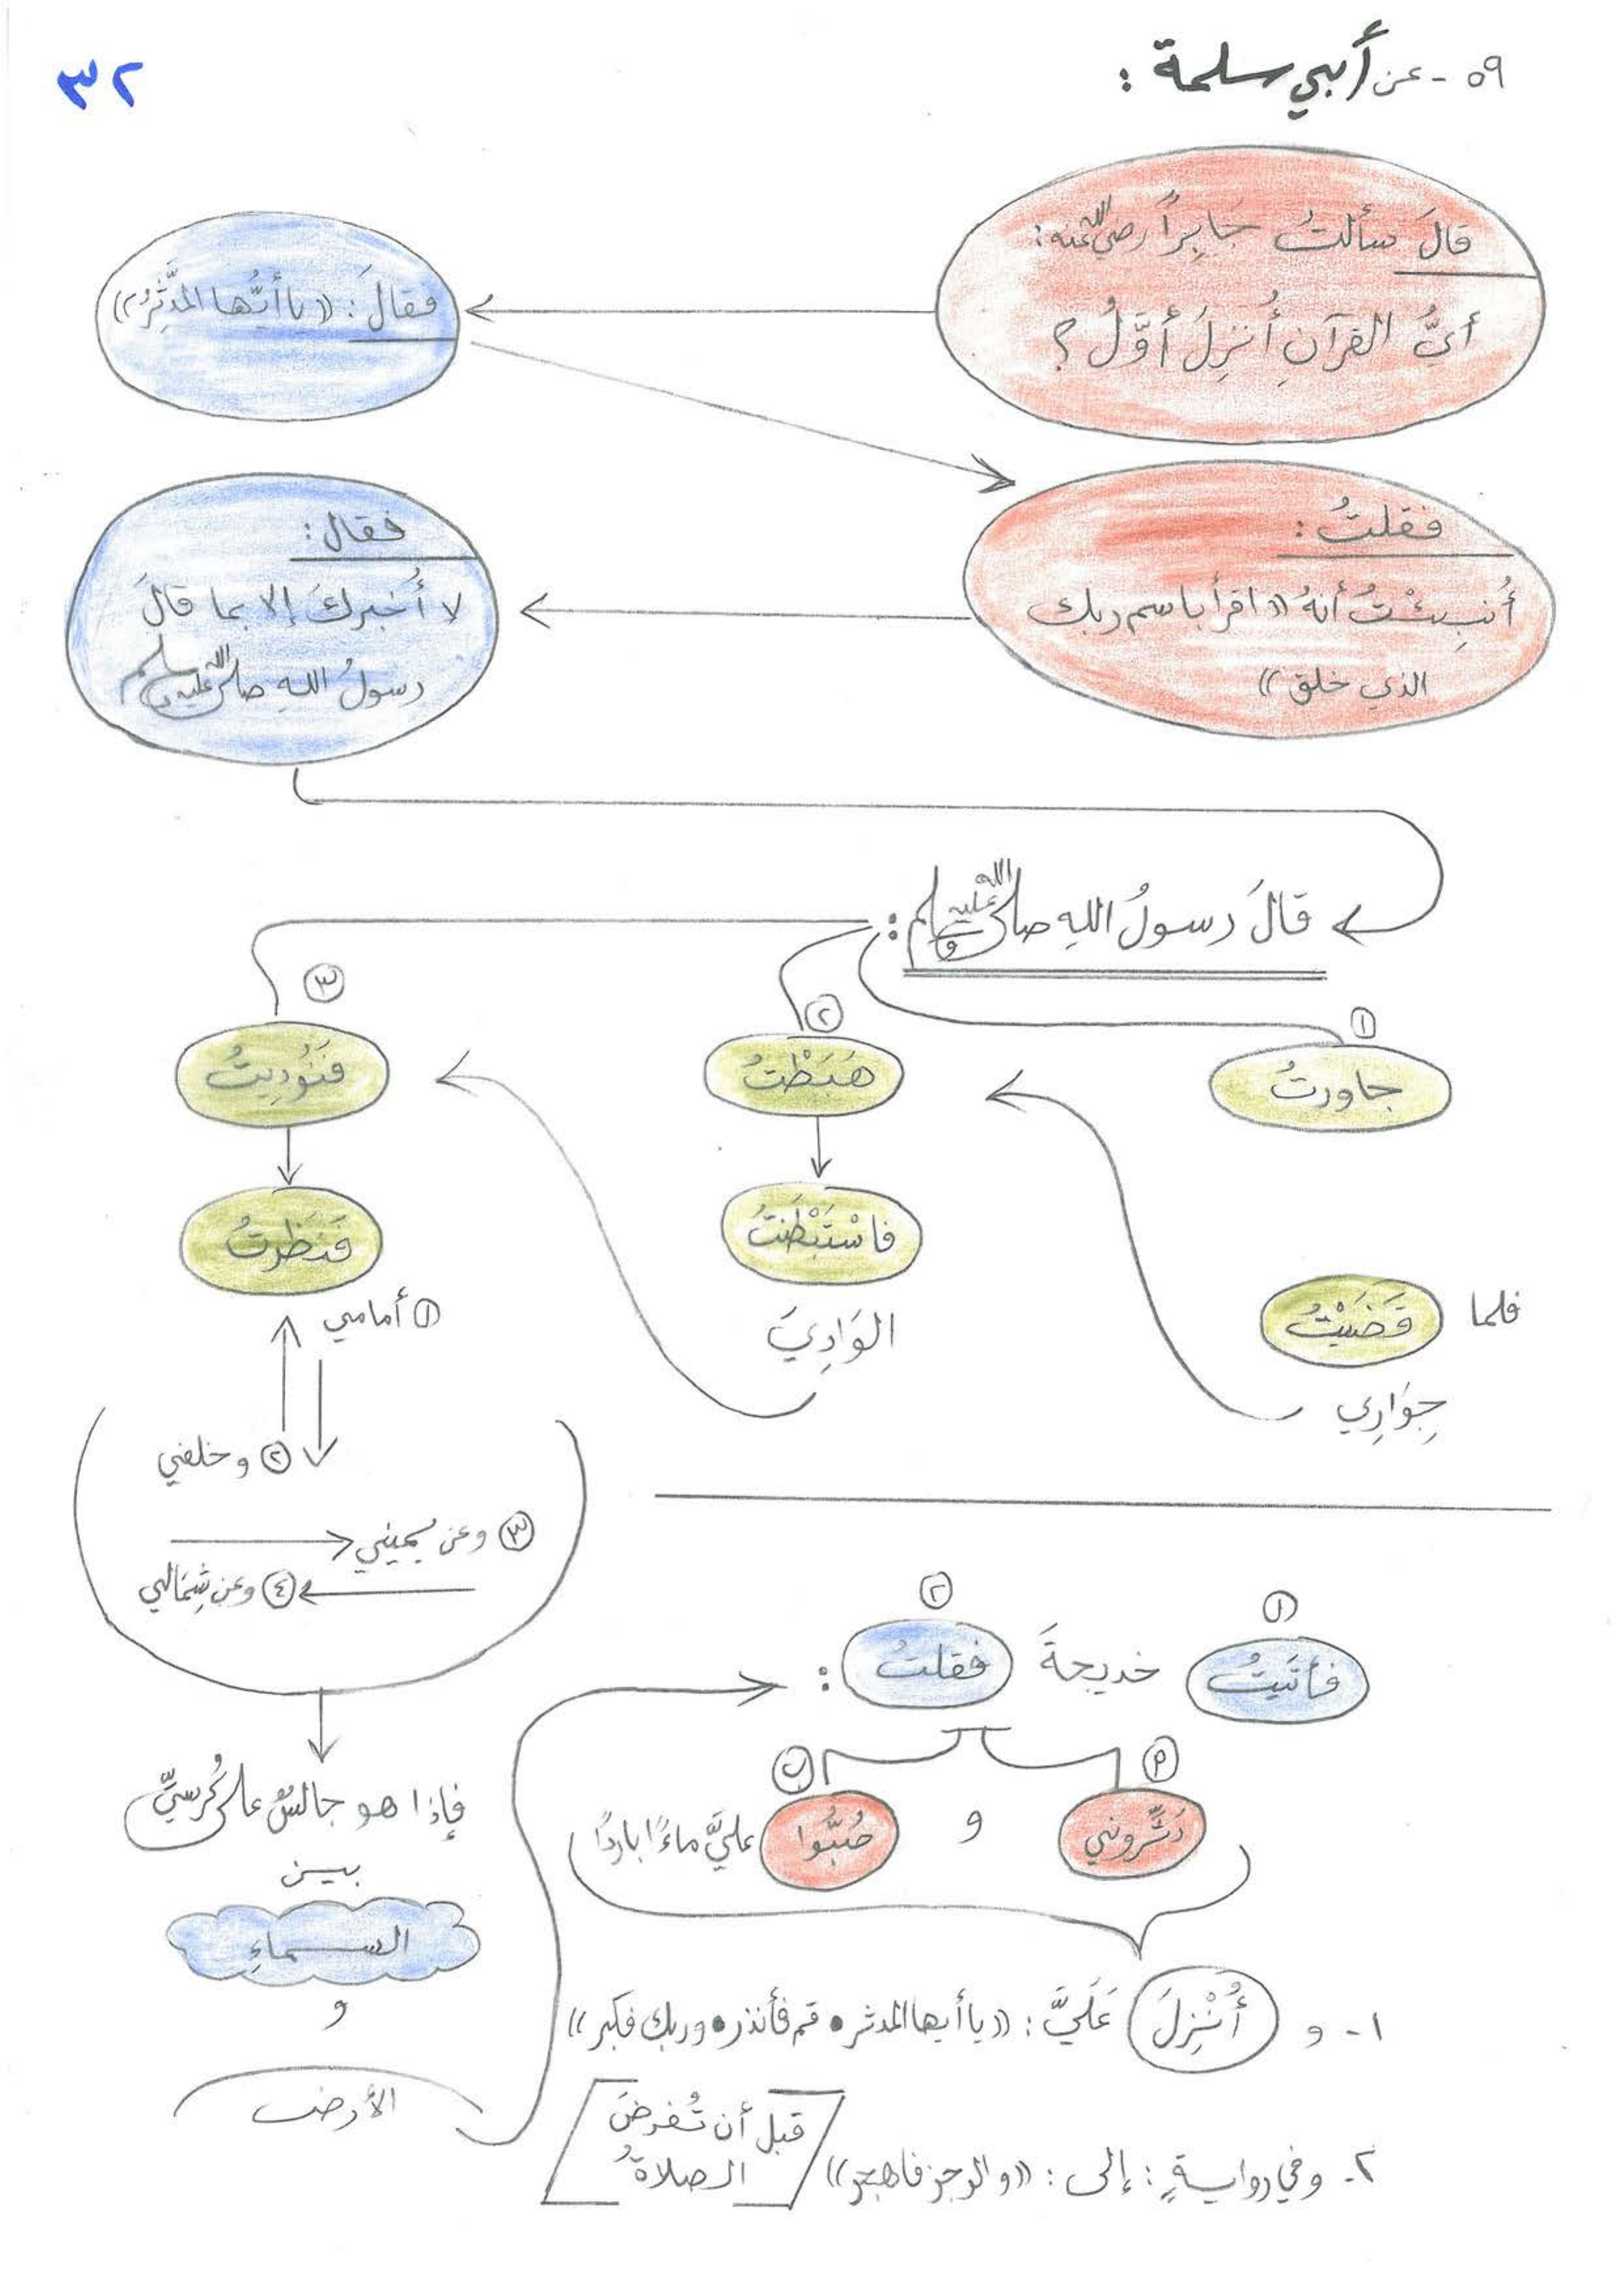 ٣٢
٥٩ - عن أبي سلمة :
قالَ سألتُ جَابِراً رضي الله عنه:
أيُّ القرآنِ أُنزِلَ أوَّلُ ؟
فقالَ : ((يا أيُّها المدَّثِّرُ))
فقلتُ :
أُنبِئْتُ أنهُ ((اقرأ باسم ربك
الذي خلق))
فقال :
لا أُخبركَ إلا بما قالَ
رسولُ اللهِ صلى الله عليه وسلم
قالَ رسولُ اللهِ صلى الله عليه وسلم :
١
جاورتُ
فلما قَضَيْتُ
جِوَارِي
٢
هَبَطْتُ
فاسْتَبْطَنتُ
الوَادِيَ
٣
فَنُودِيتُ
فَنَظَرتُ
١ أمامي
٢ وخلفي
٣ وعن يميني
٤ وعن شِمَالي
فإذا هو جالسٌ على كُرسيٍّ
بين
السماءِ
و
الأرض
١ ٢
فأتَيتُ خديجةَ فقلتُ :
أ ب
دَثِّروني و صُبُّوا عليَّ ماءً باردًا
١- و أُنْزِلَ عَلَيَّ : ((يا أيها المدثر • قم فأنذر • وربك فكبر))
٢- وفي روايةٍ : إلى : ((والرجز فاهجر))
قبل أن تُفرضَ
الصلاةُ